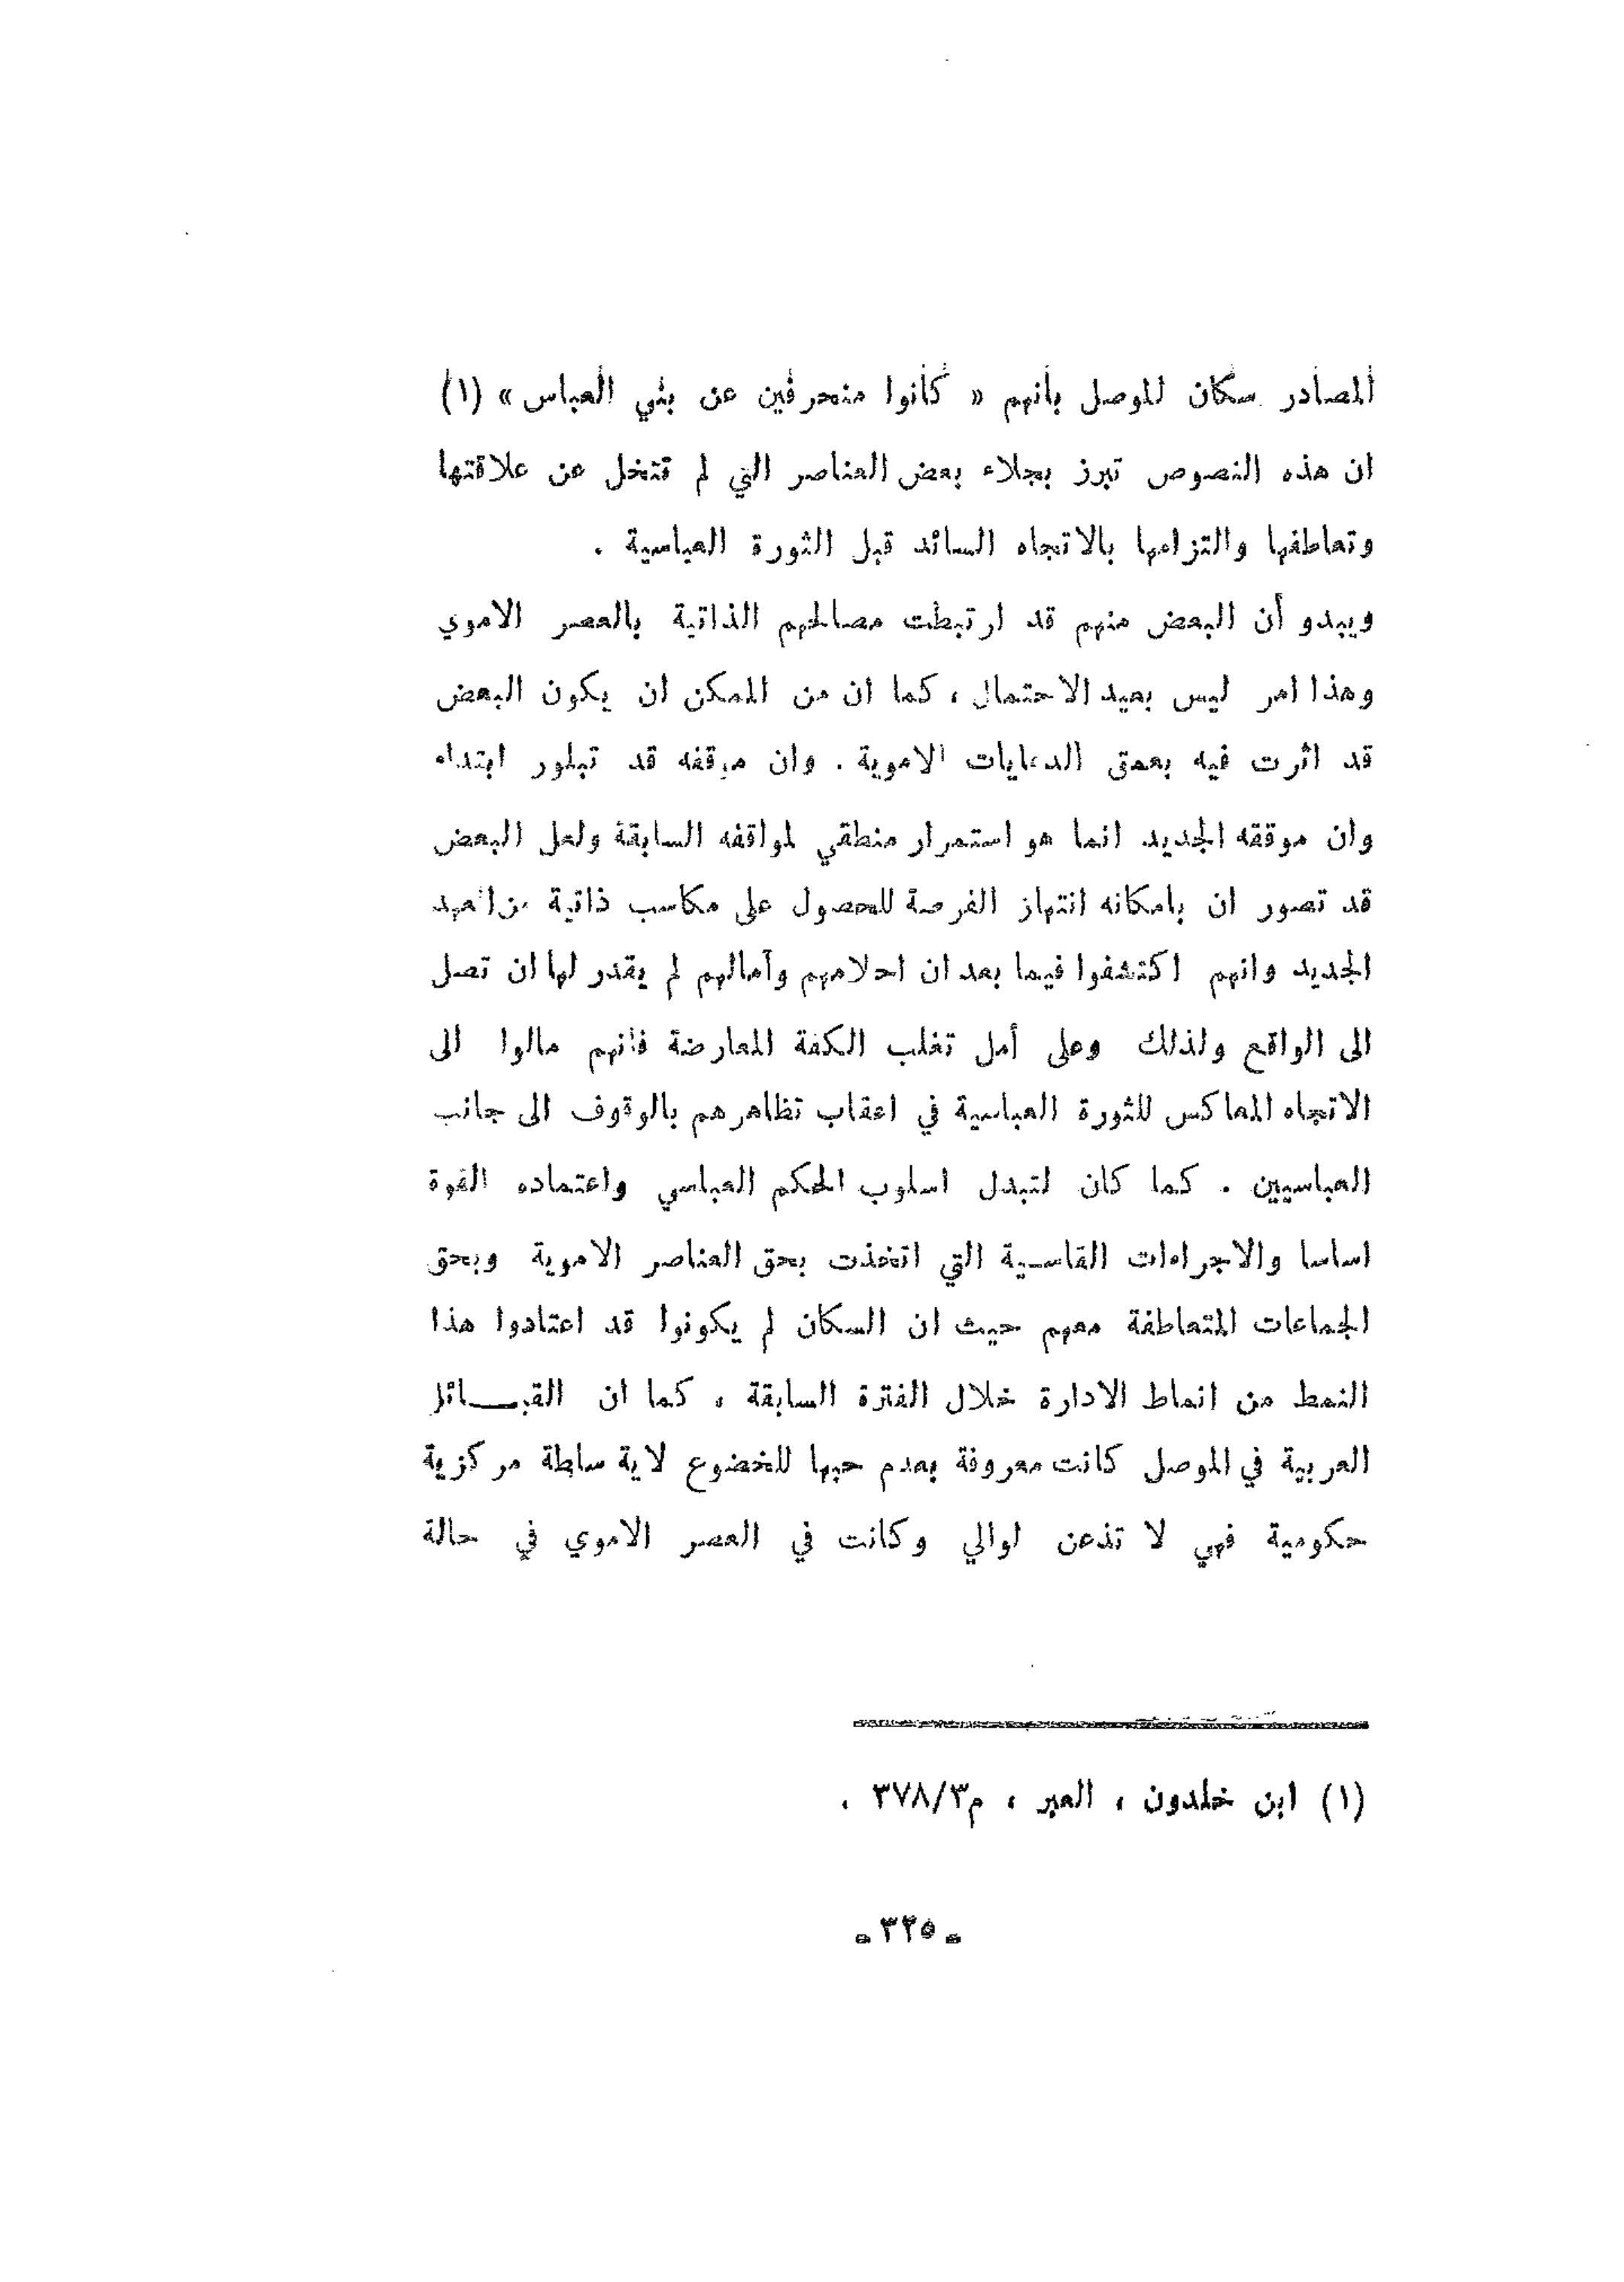 المصادر سكان الموصل بأنهم « كانوا منحرفين عن بني العباس » (١)
ان هذه النصوص تبرز بجلاء بعض العناصر التي لم تتخل عن علاقتها
وتعاطفها والتزامها بالاتجاه السائد قبل الثورة العباسية .
ويبدو أن البعض منهم قد ارتبطت مصالحهم الذاتية بالعصر الاموي
وهذا امر ليس بعيد الاحتمال ، كما ان من الممكن ان يكون البعض
قد اثرت فيه بعمق الدعايات الاموية . وان موقفه قد تبلور ابتداء
وان موقفه الجديد انما هو استمرار منطقي لمواقفه السابقة ولعل البعض
قد تصور ان بامكانه انتهاز الفرصة للحصول على مكاسب ذاتية من العهد
الجديد وانهم اكتشفوا فيما بعد ان احلامهم وآمالهم لم يقدر لها ان تصل
الى الواقع ولذلك وعلى أمل تغلب الكفة المعارضة فانهم مالوا الى
الاتجاه المعاكس للثورة العباسية في اعقاب تظاهرهم بالوقوف الى جانب
العباسيين . كما كان لتبدل اسلوب الحكم العباسي واعتماده القوة
اساسا والاجراءات القاسية التي اتخذت بحق العناصر الاموية وبحق
الجماعات المتعاطفة معهم حيث ان السكان لم يكونوا قد اعتادوا هذا
النمط من انماط الادارة خلال الفترة السابقة ، كما ان القبائل
العربية في الموصل كانت معروفة بعدم حبها للخضوع لاية سلطة مركزية
حكومية فهي لا تذعن لوالي وكانت في العصر الاموي في حالة
(١) ابن خلدون ، العبر ، م٣٧٨/٣ .
- ٣٢٥ -